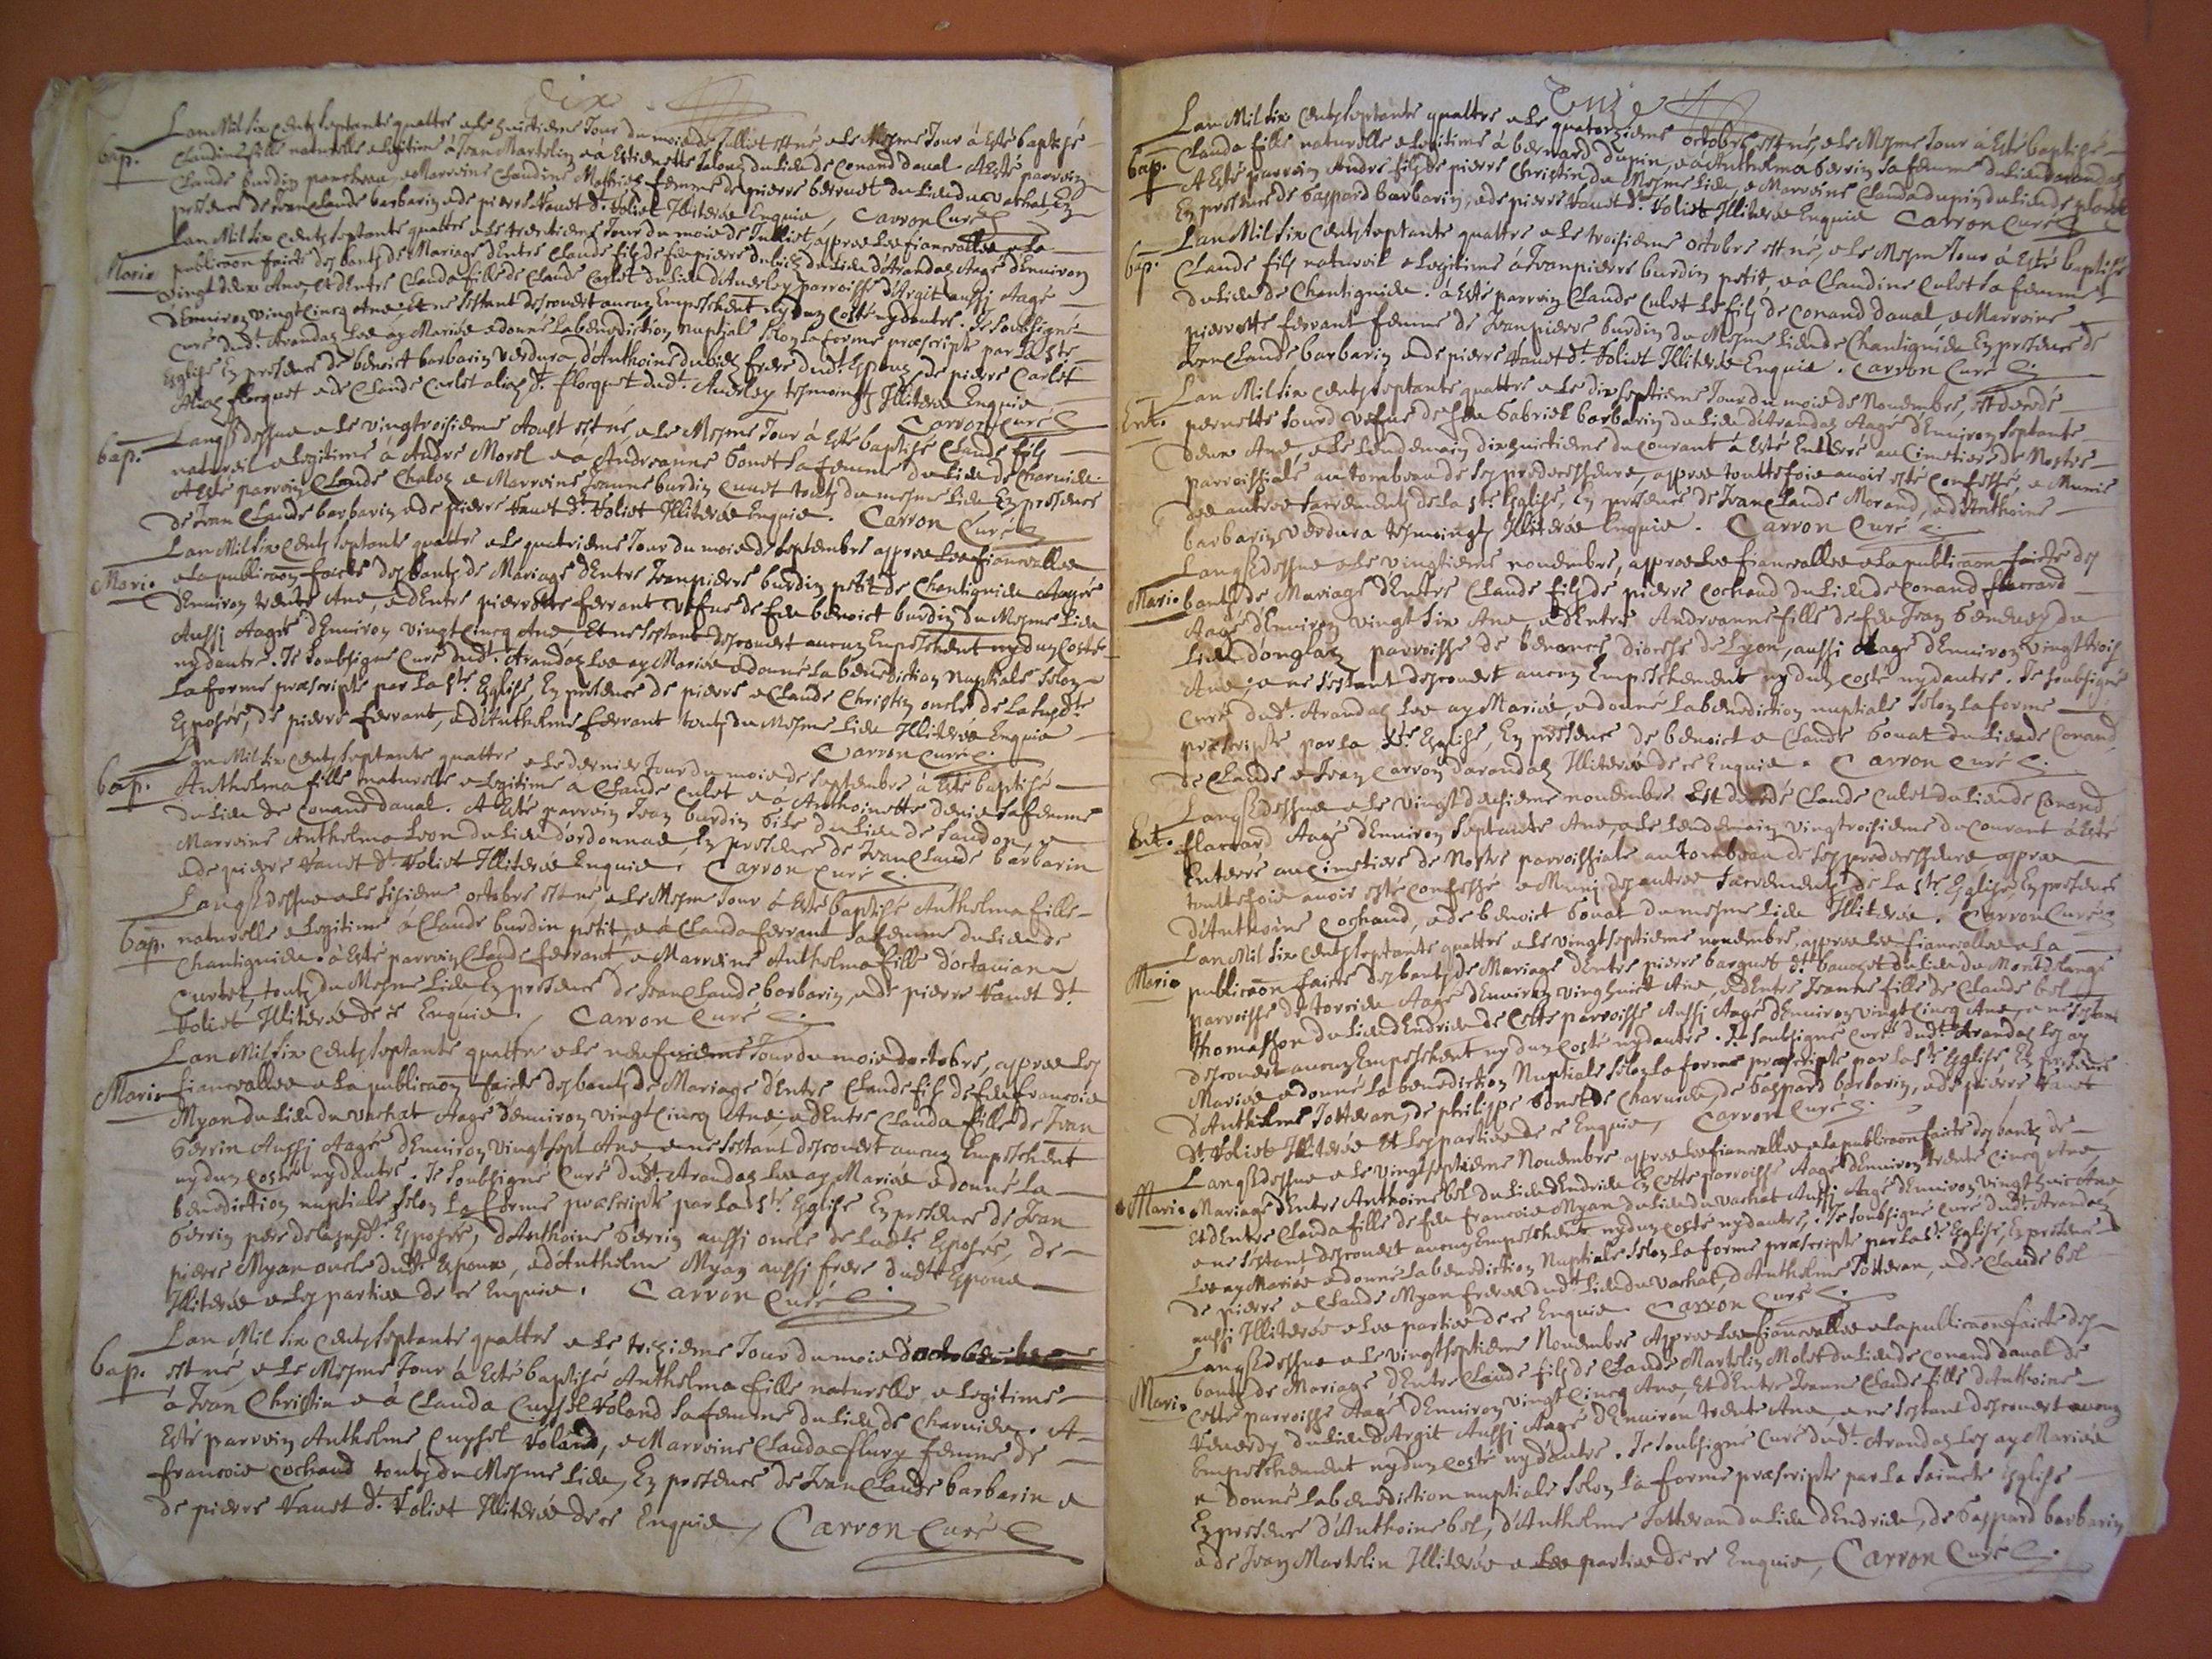 Dix
Lan Mil six centz septante quattre e le huictiesme Jour du mois de Julliet est né e le Mesme Jour à Esté baptisé
bap. Claudine fille naturelle e legitime à Jean Martelin e à Estiennette du lieu de Conand daval. A Esté parroin
Claude burdin e Marroine Claudine femme de pierre du lieu du vachat, En
presence de Jean Claude barbarin e de pierre vanet dt. Joliet Illiterés Enquis, Carron Curé
Lan Mil six centz septante quattre e le Jour du mois de Julliet, appres les fiansailles e la
Mari. publicaõn faicte des bantz de Mariage dEntre Claude filz de feu pierre du lieu dArandas Aagé dEnviron
vingt deux Ans, Et dEntre Clauda fille de Claude Carlet du lieu dAndosley parroisse dArgit aussi Aagé
dEnviron vingt Cincq Ans; Et ne sestant descouvert aucun Empeschent ny dun costé ny dautre. Je soubsigné
Curé dudt. Arandas les ay Mariés e donné la benediction nuptiale selon la forme præscripte par la Ste.
Esglise En presence de benoict barbarin verdura, dAnthoine frere dudt. Espoux, de pierre Carlet
Alias flocquet e de Claude Carlet alias dt. flocquet dudt. Andosley tesmoingtz Illiterés Enquis
Carron Curé
bap. Lan q. dessus e le vingtroisiesme Aoust est né, e le Mesme Jour à Esté baptisé Claude filz
naturel e legitime à André Morel e à Andreanne bonet sa femme du lieu de Charvieu.
A Esté parroin Claude Chaloz e Marroine Jeanne burdin Cunet toutz du mesme lieu En presence
de Jean Claude barbarin e de pierre vanet dt. Joliet Illiterés Enquis. Carron Curé
Lan Mil six centz septante quattre e le quatriesme Jour du mois de septembre appres les fiansailles
Mari. e la publicaõn faicte des bantz de Mariage dEntre Jean pierre burdin petit de Chantignieu Aagé
dEnviron trente Ans, e dEntre pierrette ferrant vefve de feu benoict burdin du Mesme lieu
Aussi Aagée dEnviron vingt Cincq Ans Et ne sestant descouvert aucun Empeschent ny dun costé
ny dautre. Je soubsigné Curé dudt. Arandas les ay Mariés e donné la benediction nuptiale selon
la forme præscripte par la Ste. Esglise, En presence de pierre e Claude Christin oncle de la susdte
Esposée, de pierre ferrant, e dAnthelme ferrant toutz du Mesme lieu Illiterés Enquis
Carron Curé
Lan Mil six centz septante quattre e le dernier Jour du mois de septembre à Esté baptisé
bap. Anthelma fille naturelle e legitime a Claude Culet e à Anthoinette denis sa femme
du lieu de Conand daval. A Esté parroin Jean burdin du lieu de Saudon, e
Marroine Anthelma Leon du lieu dordonnas, En presence de Jean Claude barbarin
e de pierre vanet dt. Joliet Illiterés Enquis. Carron Curé
Lan q. dessus e le sixiesme octobre est né e le Mesme Jour à Esté baptisé Anthelma fille
bap. naturelle e legitime à Claude burdin petit, e à Clauda ferrant sa femme du lieu de
Chantignieu. à Esté parroin Claude ferrant e Marroine Anthelma fille doctavian
Curtet toutz du Mesme lieu En presence de Jean Claude barbarin, e de pierre vanet dt.
Joliet Illiterés de ce Enquis. Carron Curé
Lan Mil six centz septante quattre e le neufviesme Jour du mois doctobre, appres les
Mari. fiansailles e la publicaõn faicte des bantz de Mariage dEntre Claude filz de feu francois
Myan du lieu du vachat Aagé dEnviron vingt Cincq Ans; e dEntre Clauda fille de Jean
berrin Aussi Aagée dEnviron vingt sept Ans, e ne sestant descouvert aucun Empeschent
ny dun costé ny dautre. Je soubsigné Curé dudt. Arandas les ay Mariés e donné la
benediction nuptiale selon la forme præscripte par la Ste. Esglise En presence de Jean
berrin pere de la susdt. Esposée, dAnthoine berrin aussi oncle de ladte Esposée, de
pierre Myan oncle dudt Espoux, e dAnthelme Myan aussi frere dudt Espoux
Illiterés e les parties de ce Enquis. Carron Curé
Lan Mil six centz septante quattre e le treziesme Jour du mois doctobre
bap. est né, e le Mesme Jour à Esté baptisé Anthelma fille naturelle, e legitime
à Jean Christin e à Clauda Cuysel voland sa femme du lieu de Charvieu. A
Esté parroin Anthelme Cuysel voland, e Marroine Clauda flury femme de
francois cochand toutz du Mesme lieu, En presence de Jean Claude barbarin e
de pierre vanet dt. Joliet Illiterés de ce Enquis, Carron Curé
Onze
Lan Mil six centz septante quattre e le quatorziesme octobre est né, e le Mesme Jour à Esté baptisé
bap. Clauda fille naturelle e legitime à bernard dupin, e à Anthelma berrin sa femme du lieu darandas
A Esté parroin André filz de pierre Christin du Mesme lieu, e Marroine Clauda dupin du lieu de
En presence de Gaspard barbarin, e de pierre vanet dt. Joliet Illiterés Enquis Carron Curé
Lan Mil six centz septante quattre e le troisiesme octobre est né, e le Mesme Jour à Esté baptisé
bap. Claude filz naturel e legitime à Jean pierre burdin petit, e à Claudine Culet sa femme
du lieu de Chantignieu. à Esté parroin Claude Culet le filz de Conand daval, e Marroine
pierrette ferrant femme de Jean pierre burdin du Mesme lieu de Chantignieu En presence de
Jean Claude barbarin e de pierre vanet dt. Joliet Illiterés Enquis. Carron Curé
Lan Mil six centz septante quattre e le dixseptiesme Jour du mois de Novembre, est decedé
Ent. pernette vefve de feu Gabriel barbarin du lieu dArandas Aagé dEnviron septante
deux Ans, e le lendemain dixhuictiesme du Courant à Esté Enterré au Cimetiere de Nostre
parroissiale au tombeau de ses predecesseurs, appres touttefois avoir esté confessé, e Munie
des autres sacrementz de la Ste. Esglise, En presence de Jean Claude Morand, e dAnthoine
barbarin verdura tesmoingtz Illiterés Enquis. Carron Curé
Lan q. dessus e le vingtiesme novembre, appres les fiansailles e la publicaõn faicte des
Mari. bantz de Mariage dEntre Claude filz de pierre Cochand du lieu de Conand flaccard
Aagé dEnviron vingt six Ans, e dEntre Andreanne fille de feu Jean du
lieu donglas parroisse de benonce diocese de Lyon, aussi Aagé dEnviron vingt trois
Ans; e ne sestant descouvert aucun Empeschement ny dun costé ny dautre. Je soubsigné
Curé dudt. Arandas les ay Mariés, e donné la benediction nuptiale selon la forme
præscripte par la Ste. Esglise, En presence de benoict e Claude bonat du lieu de Conand
de Claude e Jean Carron darandas Illiterés de ce Enquis. Carron Curé
Lan q. dessus e le vingt deuxiesme novembre Est decedé Claude Culet du lieu de Conand
Ent. flaccard Aagé dEnviron septante Ans, e le lendemain vingtroisiesme du Courant à Esté
Enterré au Cimetiere de Nostre parroissiale au tombeau de ses predecesseurs appres
touttefois avoir esté confessé e Muny des autres sacrementz de la Ste. Esglise, En presence
dAnthoine Cochand, e de benoict bonat du mesme lieu Illiterés. Carron Curé
Lan Mil six centz septante quattre e le vingt septiesme novembre, appres les fiansailles e la
Mari. publicaõn faicte des bantz de Mariage dEntre pierre barquet dt. du lieu du Montdelange
parroisse de torcieu Aagé dEnviron vingthuict Ans, e dEntre Jeanne fille de Claude bel
thomasson du lieu dEndrieu de Ceste parroisse Aussi Aagé dEnviron vingt Cincq Ans, e ne sestant
descouvert aucun Empeschent ny dun costé ny dautre. Je soubsigné Curé dudt. Arandas les ay
Mariés e donné la benediction Nuptiale selon la forme præscripte par la Ste Esglise En presence
dAnthelme Jotteran, de philippe bonet de Charvieu, de Gaspard barbarin, e de pierre vanet
dt. Joliet Illiterés Et les parties de ce Enquis, Carron Curé
Lan q. dessus e le vingtseptiesme Novembre appres les fiansailles e la publicaõn faicte des bantz de
Mari. Mariage dEntre Anthoine bel du lieu dEndrieu En Ceste parroisse Aagé dEnviron trente Cincq Ans,
Et dEntre Clauda fille de feu francois Myan du lieu du vachat Aussi Aagé dEnviron vingt huict Ans
e ne sestant descouvert aucun Empeschent ny dun costé ny dautre, Je soubsigné Curé dudt. Arandas
les ay Mariés e donné la benediction Nuptiale selon la forme præscripte par la Ste. Esglise, En presence
de pierre e Claude Myan freres dudt lieu du vachat, dAnthelme Jotteran, e de Claude bel
aussi Illiterés e les parties de ce Enquis. Carron Curé
Lan q. dessus e le vingtseptiesme Novembre Appres les fiansailles e la publicaõn faicte des
Mari. bantz de Mariage dEntre Claude filz de Claude Martelin Molet du lieu de Conand daval de
Ceste parroisse Aagé dEnviron vingt Cincq Ans, Et dEntre Jeanne Claude fille dAnthoine
Venerdy du lieu dArgit Aussi Aagé dEnviron trente Ans, e ne sestant descouvert aucun
Empeschement ny dun costé ny dautre. Je soubsigné Curé dudt. Arandas les ay Mariés
e donné la benediction nuptiale selon la forme præscripte par la saincte Esglise
En presence dAnthoine bel, dAnthelme Jotteran du lieu dEndrieu, de Gaspard barbarin
e de Jean Martelin Illiterés e les parties de ce Enquis, Carron Curé